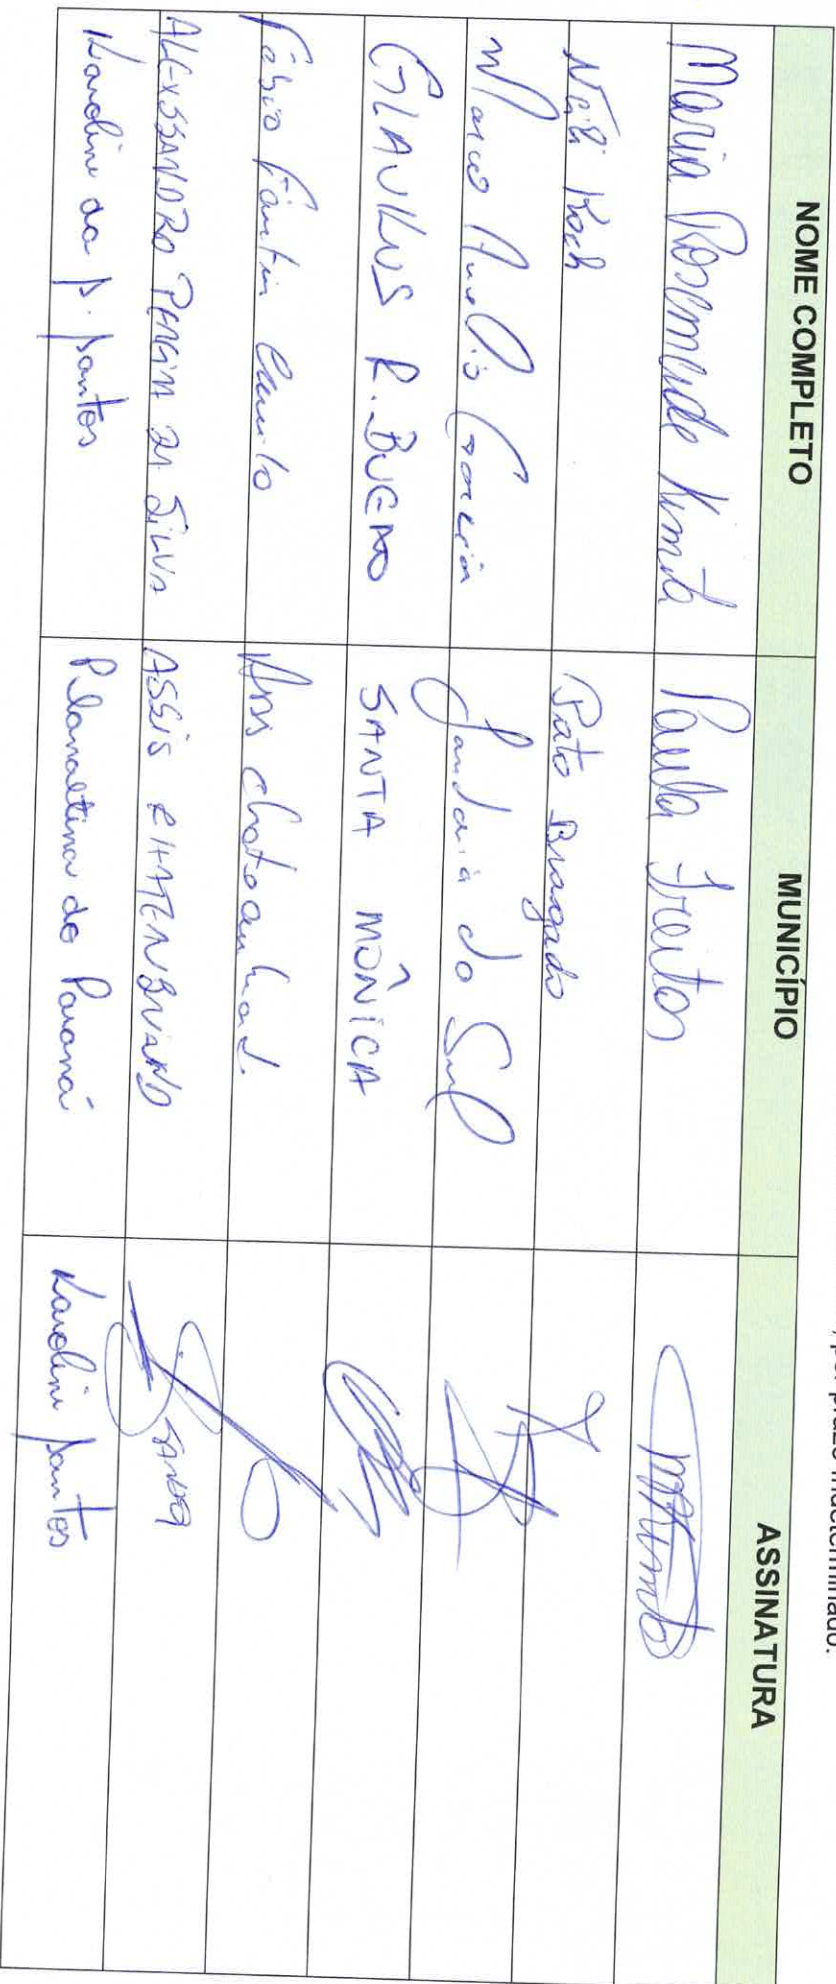 por prazo indeterminado.
NOME COMPLETO MUNICÍPIO ASSINATURA
Maria Rosemeide Kimita Paula Freitas
Neli Koch Pato Bragado
Marco Aurelio Garcia Jandaia do Sul
GLAUKUS R. BUENO SANTA MÔNICA
Fábio Camilo Assis chateaubriand
ALEXSSANDRO PEREIRA DA SILVA ASSIS CHATEAUBRIAND
Karoline da S. Santos Planaltina do Paraná Karoline Santos